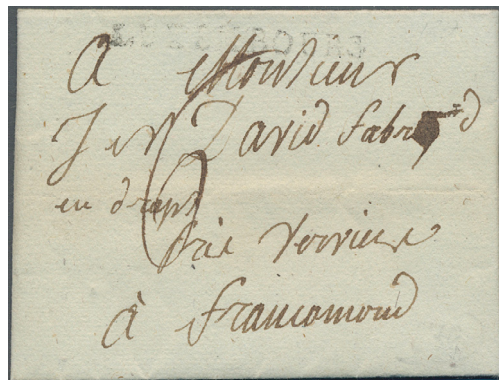 A Monsieur
J er David fabr
en draps
Prie Verviers
à francomond